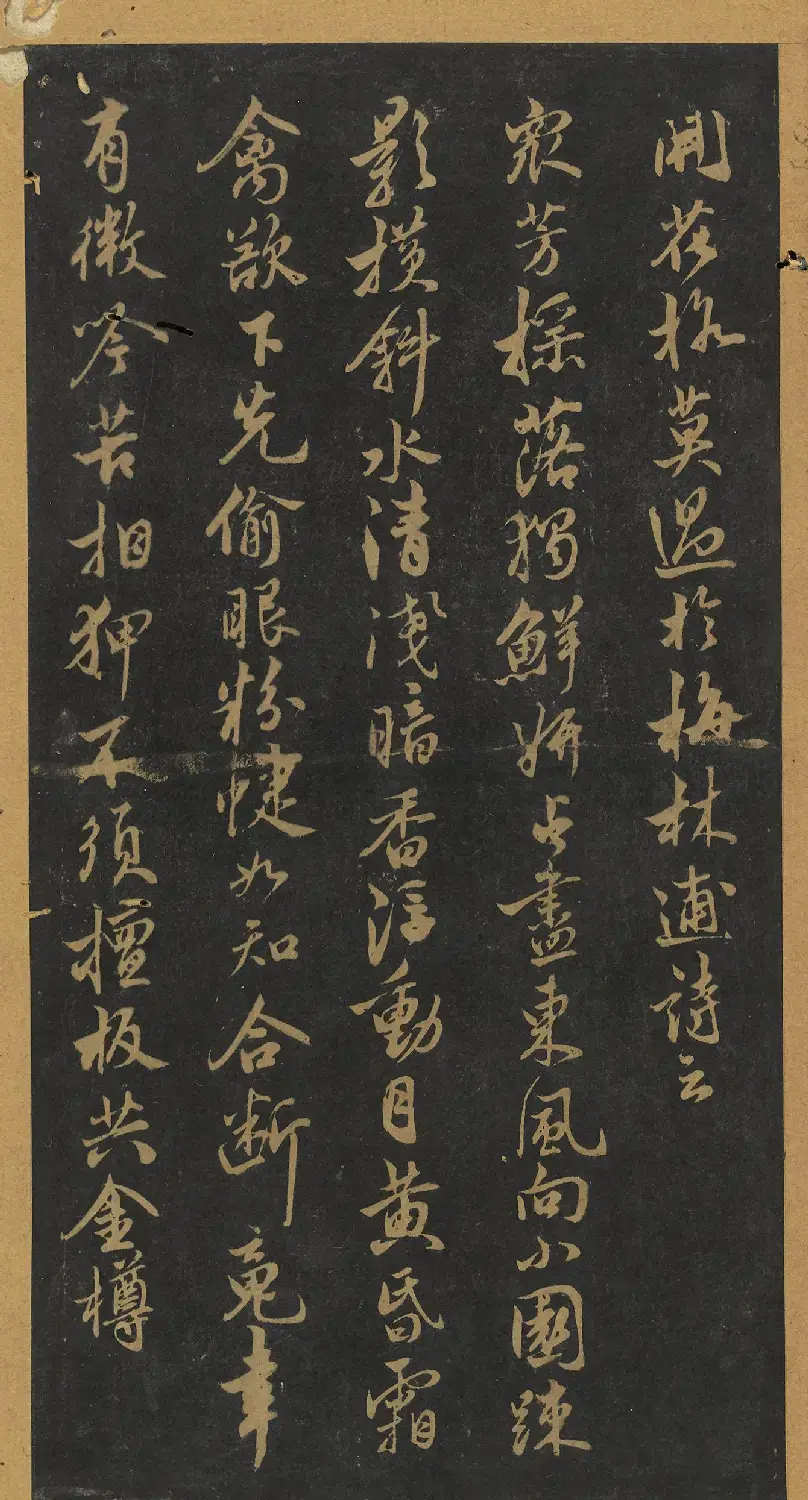 開花格莫過於梅林逋詩云
衆芳摇落獨鮮妍占盡東風向小園踈
影横斜水清淺暗香浮動月黄昏霜
禽欲下先偷眼粉蜨如知合断䰟幸
有微吟苦相狎不須檀板共金樽